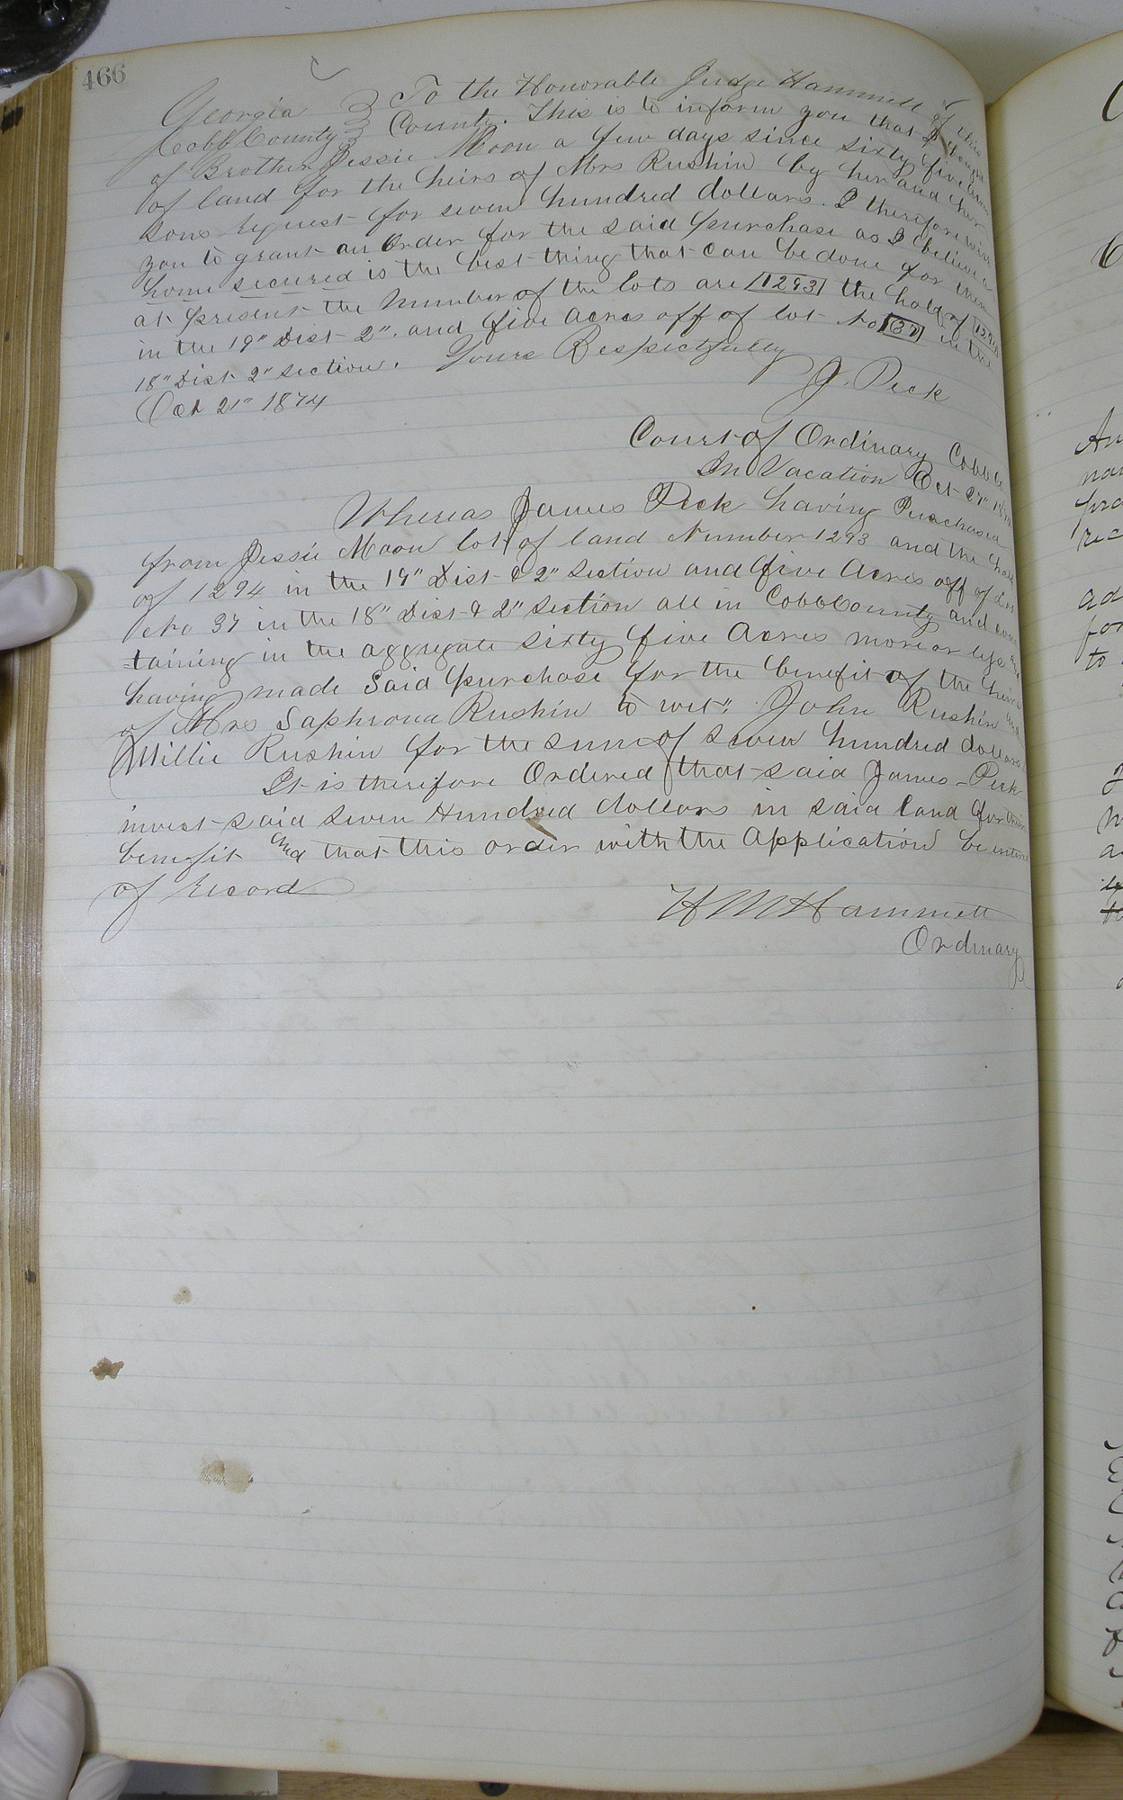 466
Georgia } To the Honorable Judge Hammett of this
Cobb County } County. This is to inform you that I bought
of Brother Jessie Moon a few days since sixty five acres
of land for the heirs of Mrs Rushin by her and her
sons request for seven hundred dollars. I therefore wish
you to grant an order for the said purchase as I believe a
home secured is the best thing that can be done for them
at present the Number of the lots are 1293 the half of 1294
in the 19" Dist 2". and five acres off of lot No 37 in the
18" Dist 2" section. Yours Respectfully
J. Peck
Oct 21st 1874
Court of Ordinary Cobb Co
In Vacation Oct 1874
Whereas James Peck having Purchased
from Jessie Moon lot of land Number 1293 and the half
of 1294 in the 19" Dist & 2" Section and five Acres off of Lot
No 37 in the 18" Dist & 2" Section all in Cobb County and con
taining in the aggregate sixty five Acres more or less and
having made Said purchase for the benefit of the heirs
of Mrs Saphrona Rushin to wit" John Rushin and
Willie Rushin for the sum of seven hundred dollars
It is therefore Ordered that said James Peck
invest said seven Hundred dollars in said land for their
benefit and that this order with the Application be entered
of Record
H M Hammett
Ordinary